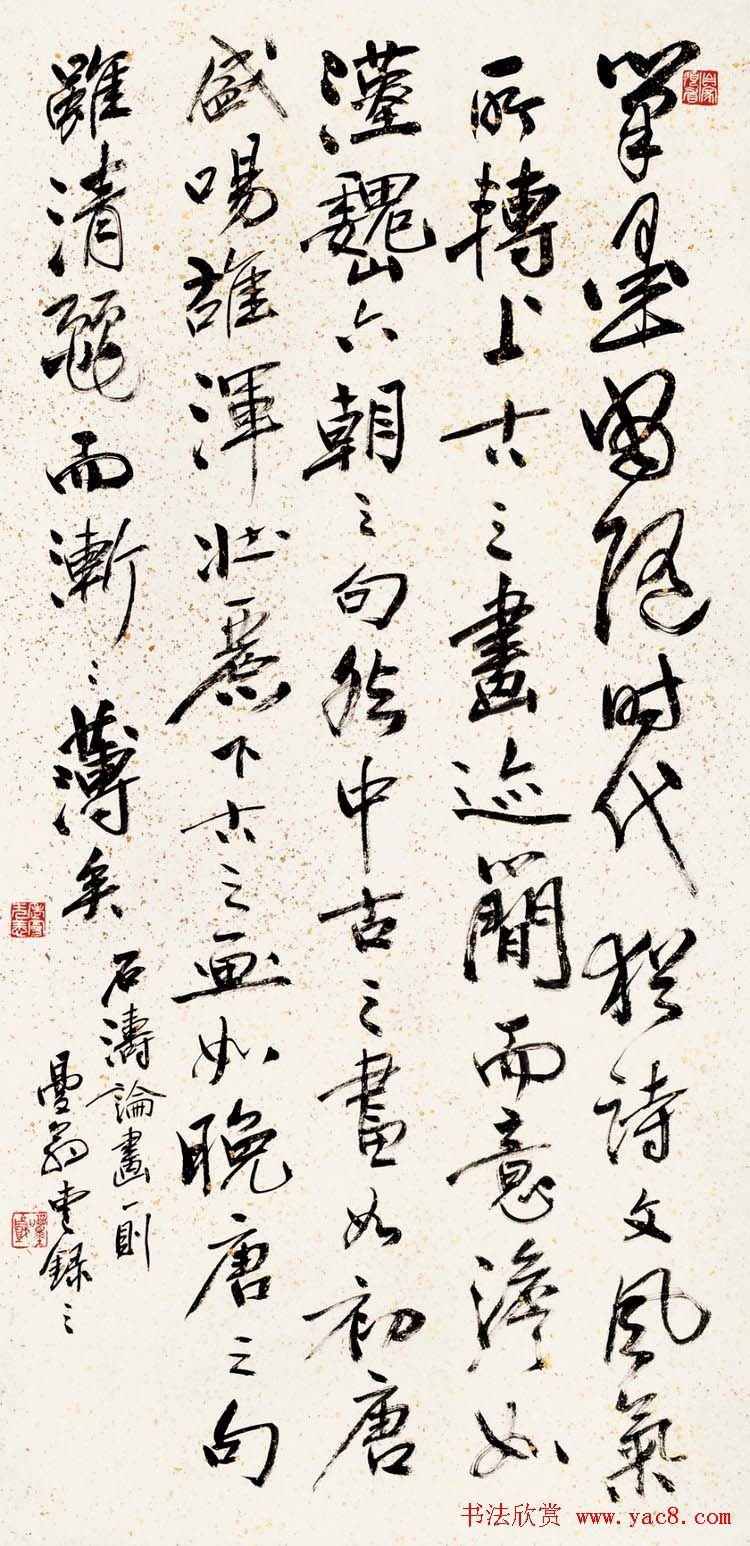 筆墨當隨时代猶詩文風氣
所轉上古之畫迹簡而意澹如
漢魏六朝之句然中古之畫如初唐
盛啺雄渾壯麗下古之画如晚唐之句
雖清麗而漸〻薄矣
石濤論畫一則
曼翁書錄之
书法欣赏 www.yac8.com